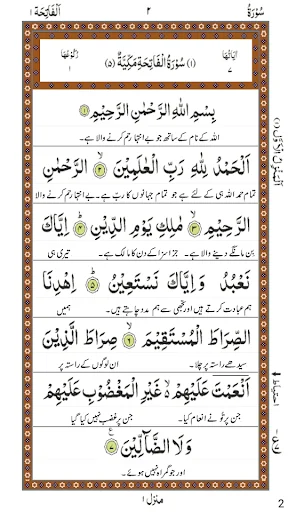 سُوْرَةُ ٢ اَلْفَاتِحَة ١
اٰيَاتُهَا ٧ (١) سُوْرَةُ الْفَاتِحَةِ مَكِّيَّةٌ (٥) رُكُوْعُهَا ١
بِسْمِ اللّٰهِ الرَّحْمٰنِ الرَّحِيْمِ ١
اللہ کے نام کے ساتھ جو بے انتہا رحم کرنے والا ہے۔
اَلْحَمْدُ لِلّٰهِ رَبِّ الْعٰلَمِيْنَ ٢ الرَّحْمٰنِ
تمام حمد اللہ ہی کے لئے ہے جو تمام جہانوں کا ربّ ہے۔ بے انتہا رحم کرنے والا
الرَّحِيْمِ ٣ مٰلِكِ يَوْمِ الدِّيْنِ ٤ اِيَّاكَ
بن مانگے دینے والا ہے۔ جزا سزا کے دن کا مالک ہے۔ تیری ہی
نَعْبُدُ وَ اِيَّاكَ نَسْتَعِيْنُ ٥ اِهْدِنَا
ہم عبادت کرتے ہیں اور تجھی سے ہم مدد چاہتے ہیں۔ ہمیں
الصِّرَاطَ الْمُسْتَقِيْمَ ٦ صِرَاطَ الَّذِيْنَ
سیدھے راستہ پر چلا۔ ان لوگوں کے راستہ پر
اَنْعَمْتَ عَلَيْهِمْ ۙ غَيْرِ الْمَغْضُوْبِ عَلَيْهِمْ
جن پر تُو نے انعام کیا۔ جن پر غضب نہیں کیا گیا
وَلَا الضَّآلِّيْنَ ٧
اور جو گمراہ نہیں ہوئے۔
منزل ١
2